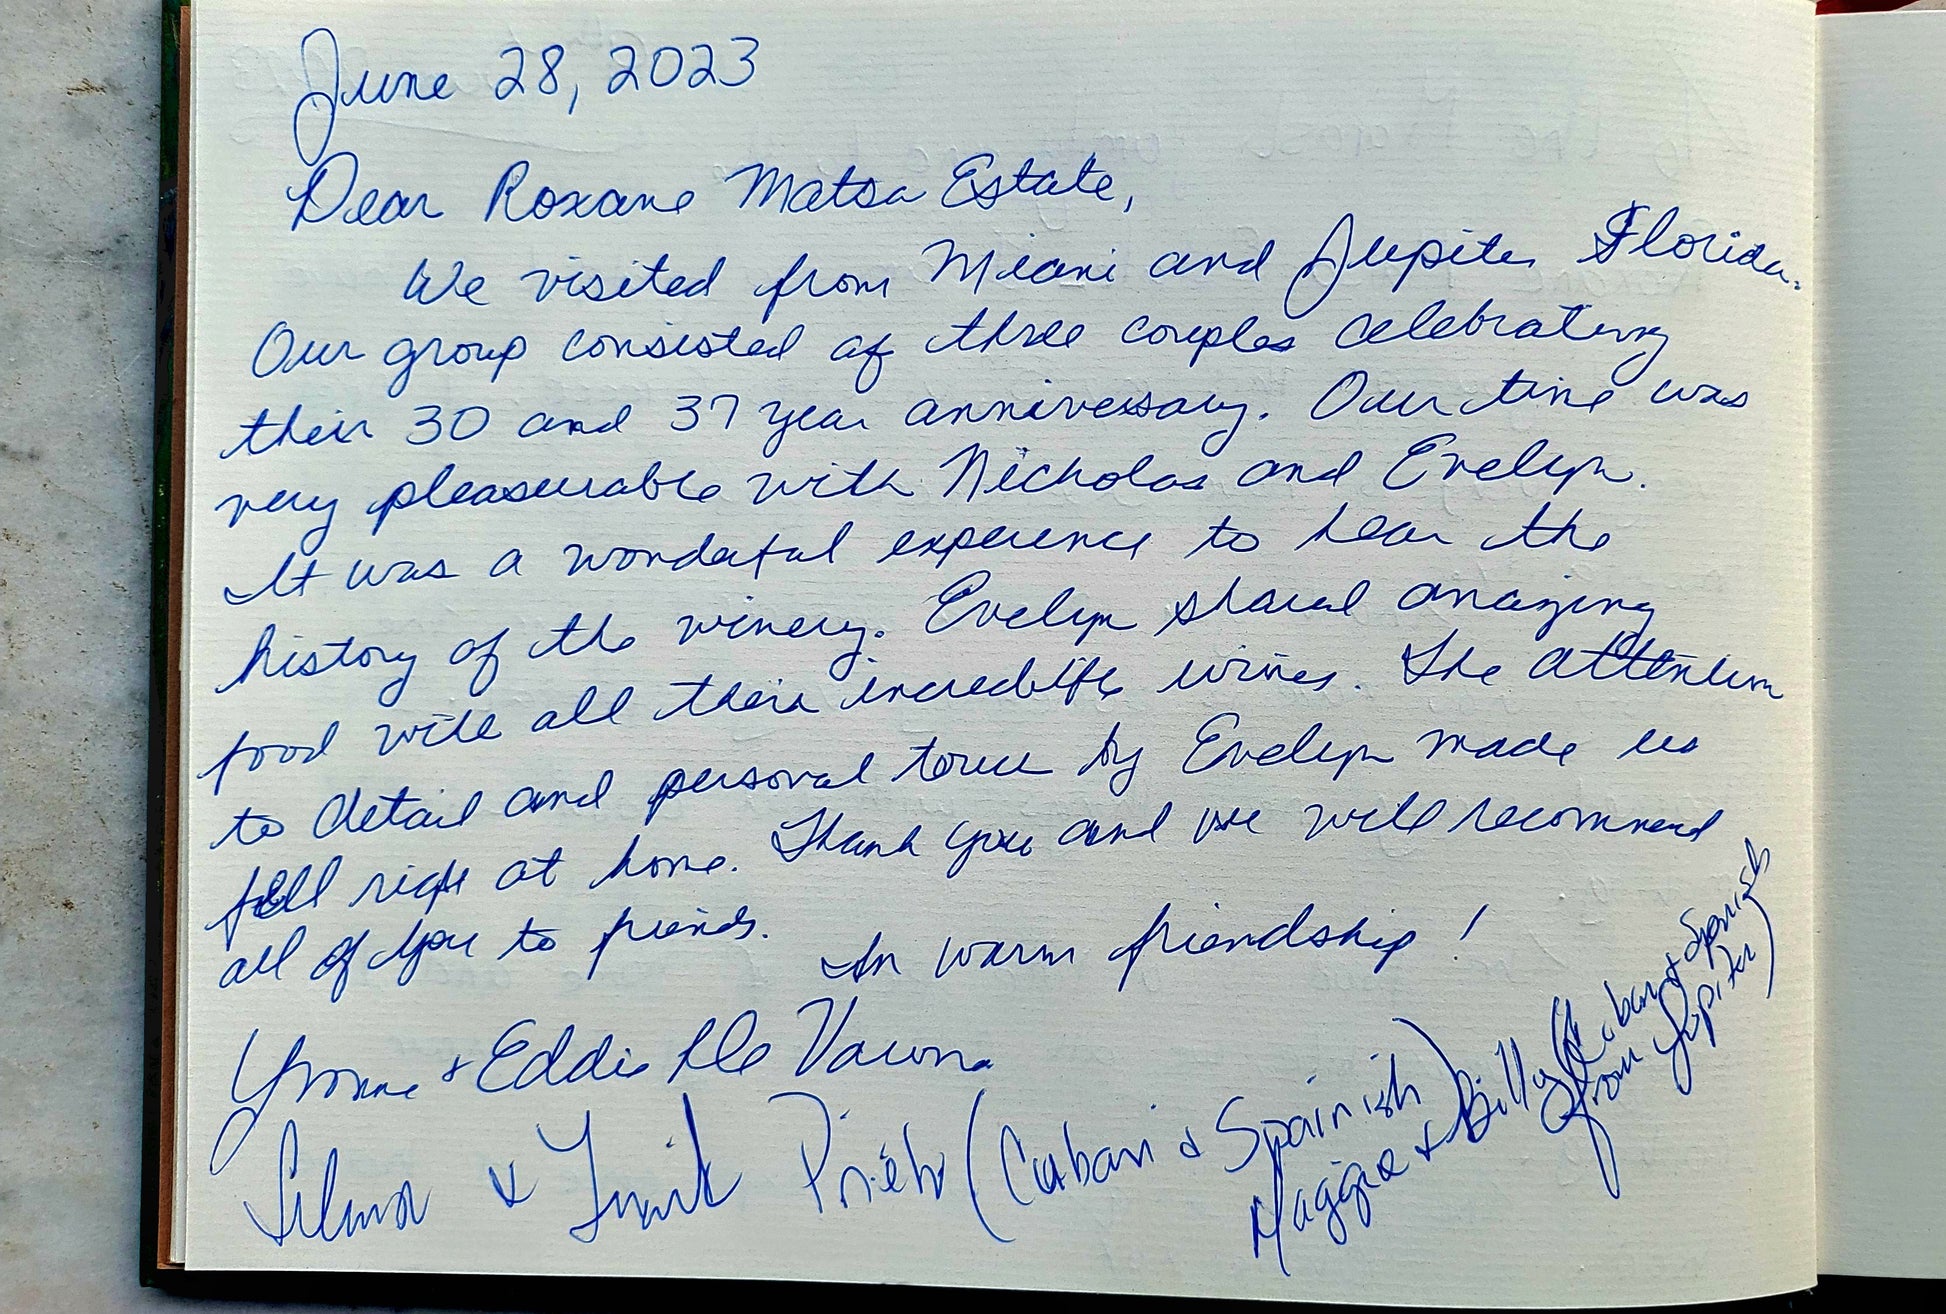 June 28, 2023
Dear Roxane Matsa Estate,
We visited from Miami and Jupiter Florida.
Our group consisted of three couples celebrating
their 30 and 37 year anniversary. Our time was
very pleasurable with Nicholas and Evelyn.
It was a wonderful experience to hear the
history of the winery. Evelyn shared amazing
food with all their incredible wines. The attention
to detail and personal tour by Evelyn made us
fell right at home. Thank you and we will recommend
all of you to friends.
In warm friendship!
Yvonne & Eddie De Varona
& Prieto (Cuban & Spainish)
Maggie & Billy (Cuban & Spanish
from Jupiter)